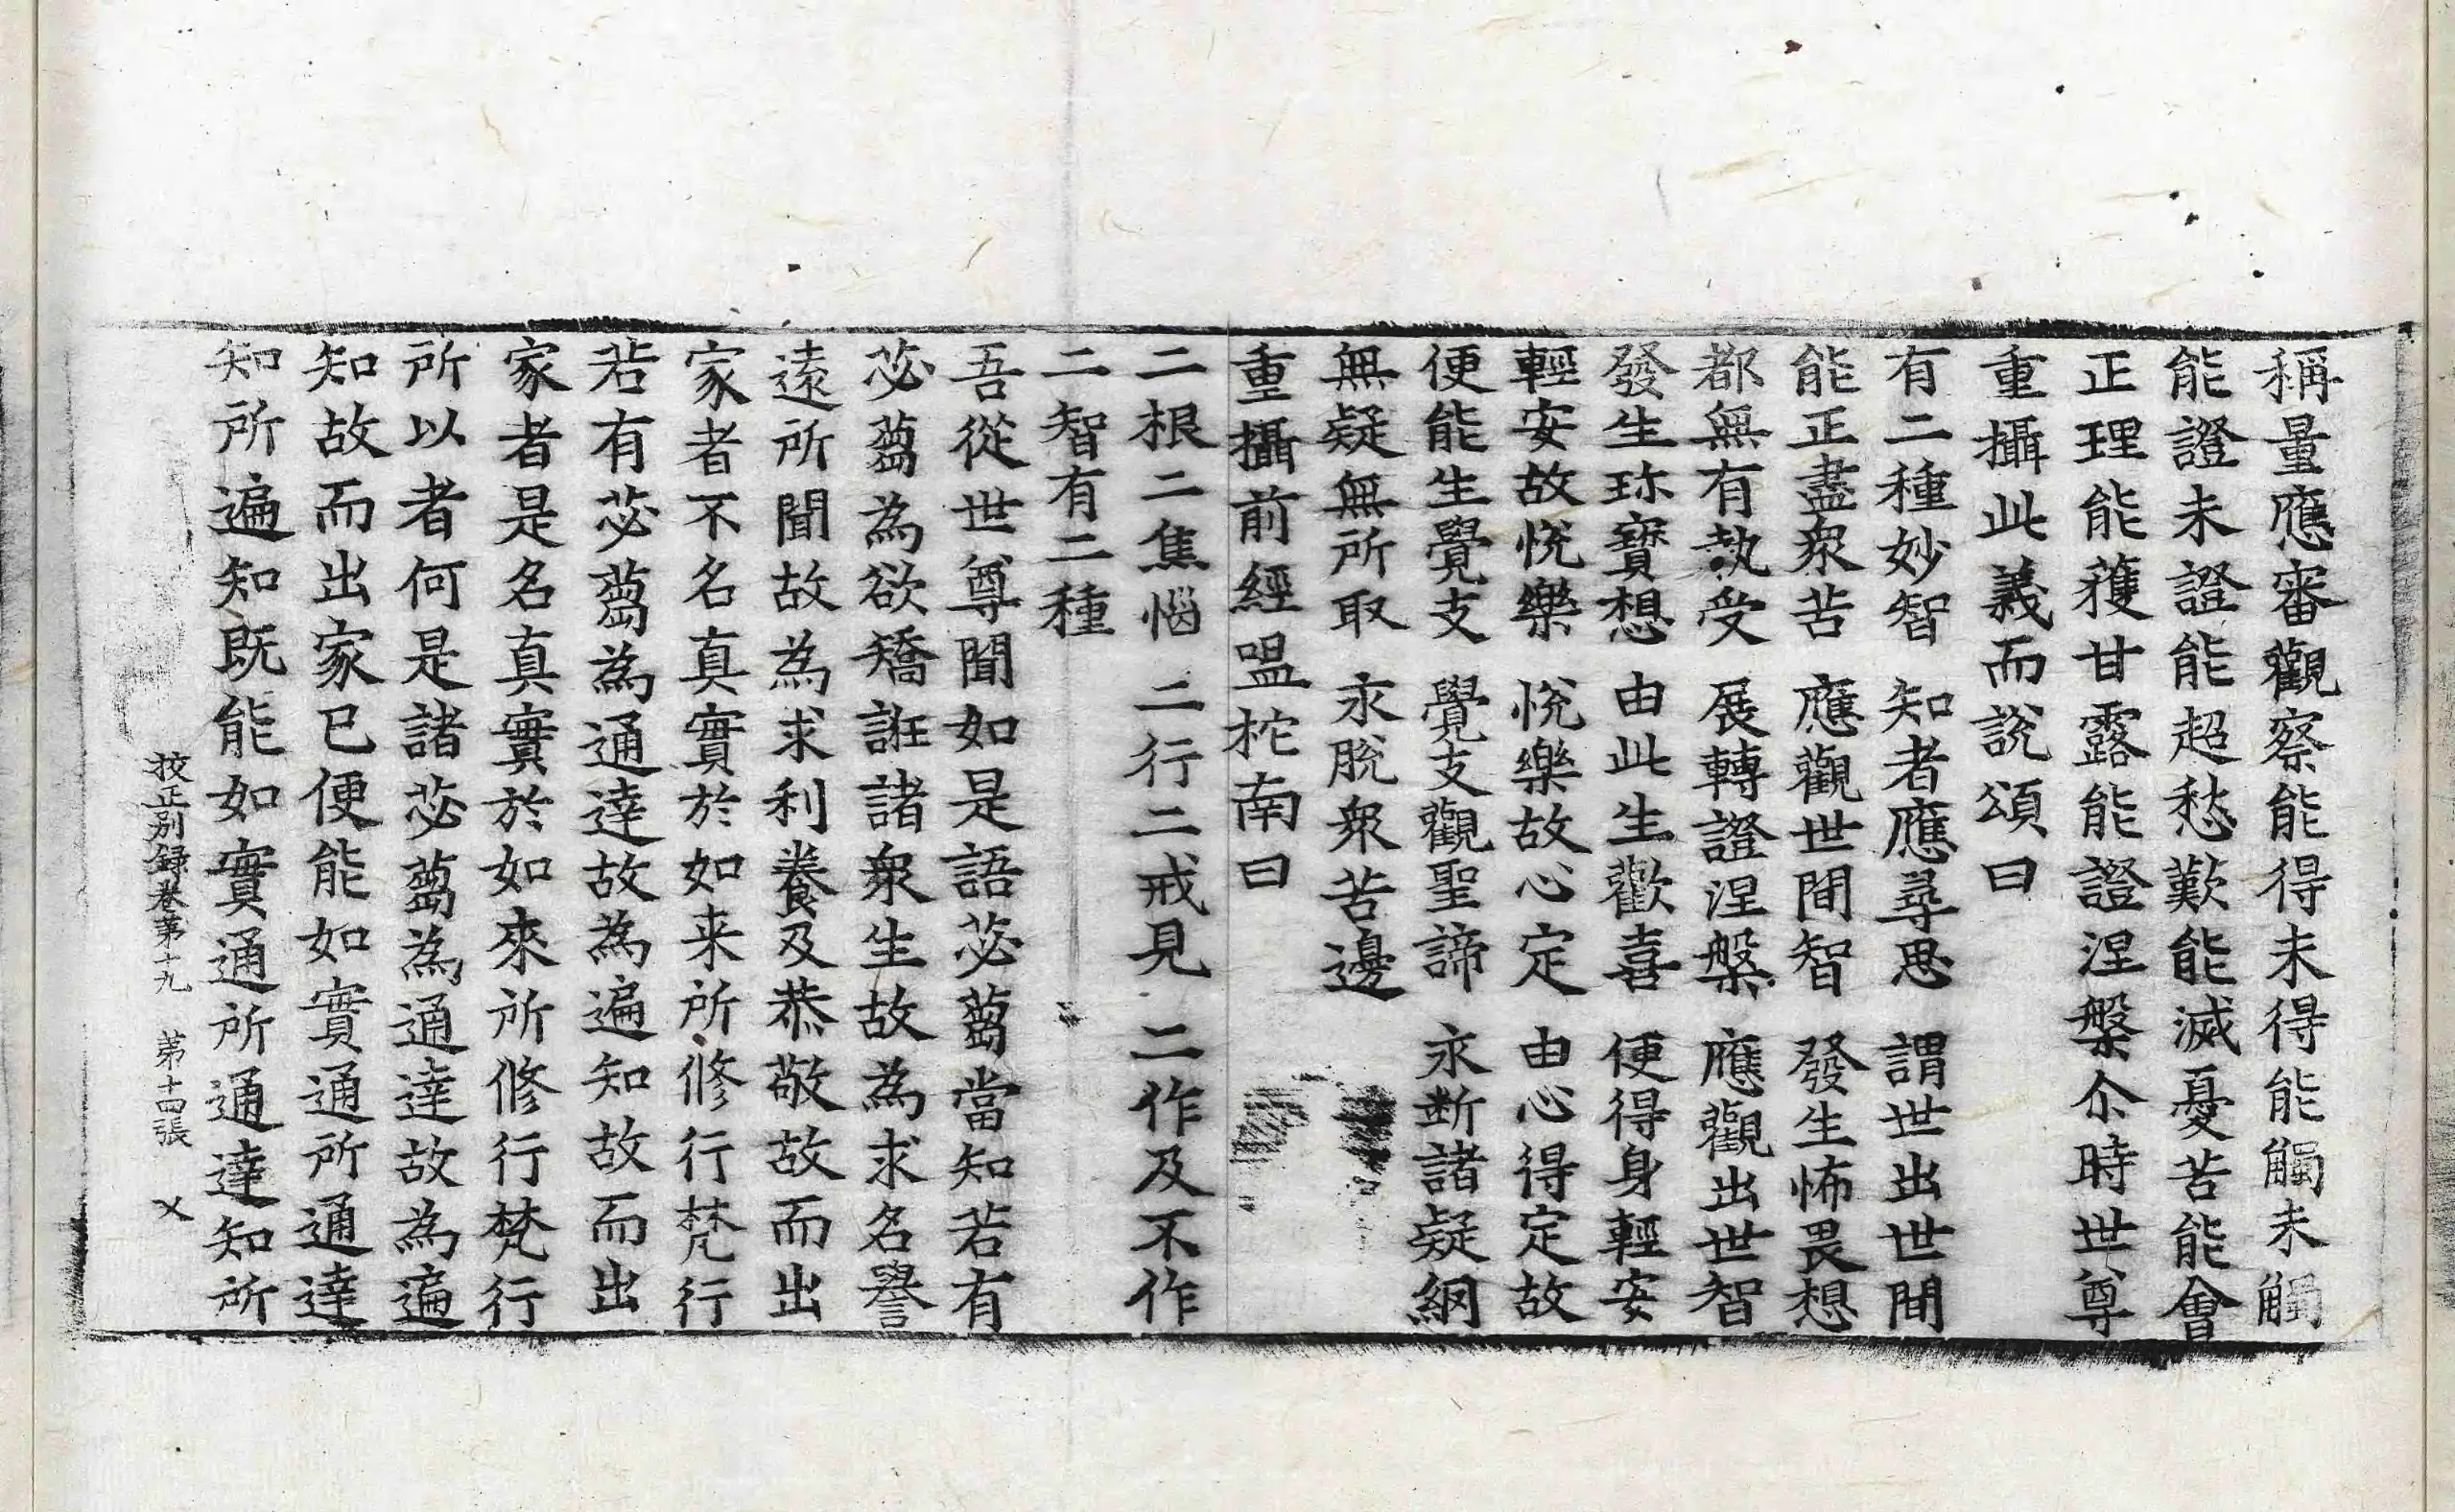 稱量應審觀察能得未得能觸未觸
能證未證能超愁歎能滅憂苦能會
正理能獲甘露能證涅槃尒時世尊
重攝此義而說頌曰
有二種妙智　知者應尋思　謂世出世間
能正盡衆苦　應觀世間智　發生怖畏想
都無有執受　展轉證涅槃　應觀出世智
發生珎寶想　由此生歡喜　便得身輕安
輕安故悅樂　悅樂故心定　由心得定故
便能生覺支　覺支觀聖諦　永斷諸疑網
無疑無所取　永脫衆苦邊
重攝前經嗢柁南曰
二根二焦惱　二行二戒見　二作及不作
二智有二種
吾從世尊聞如是語苾蒭當知若有
苾蒭為欲矯誑諸衆生故為求名譽
遠所聞故為求利養及恭敬故而出
家者不名真實於如来所修行梵行
若有苾蒭為通達故為遍知故而出
家者是名真實於如來所修行梵行
所以者何是諸苾蒭為通達故為遍
知故而出家已便能如實通所通達
知所遍知既能如實通所通達知所
校正别録卷第十九　第十四張